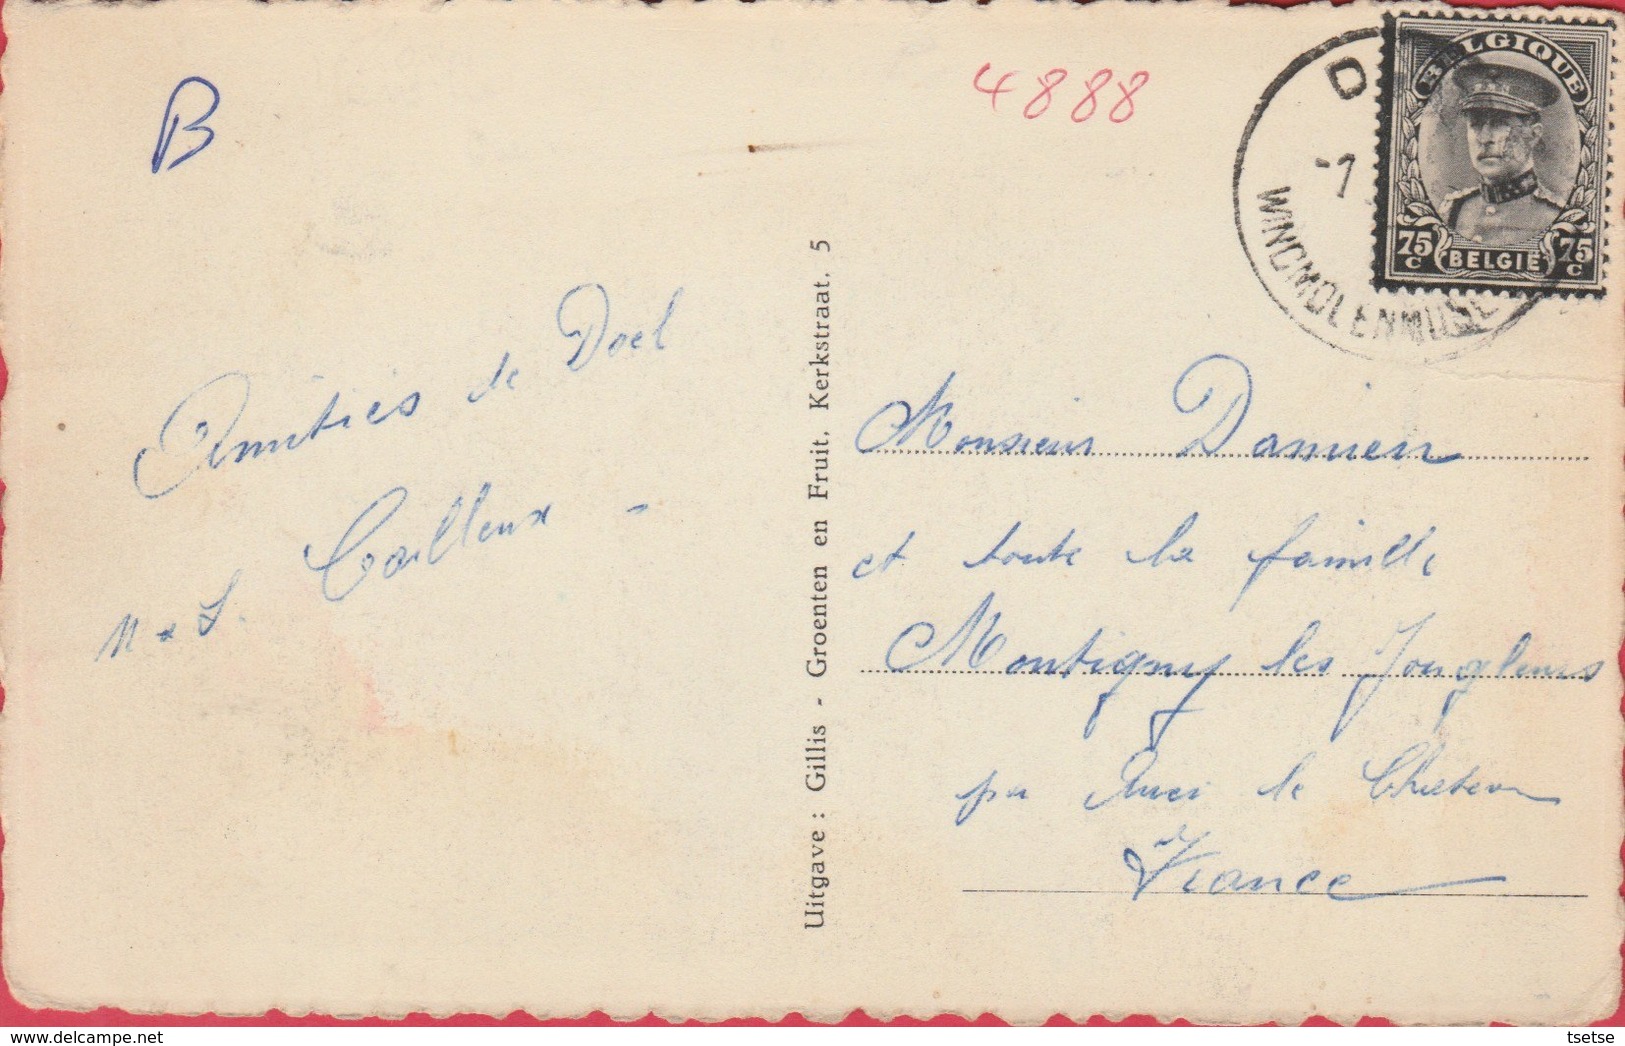 B
4888
BELGIQUE
75 C
75 C
BELGIË
-7
WINDMOLENMUSE
Amitiés de Doel
Cailleux -
Uitgave : Gillis - Groenten en Fruit. Kerkstraat. 5
Monsieur Damien
et toute la famille
Montigny les Jongleurs
par Auxi le Château
France
delcampe.net
tsetse